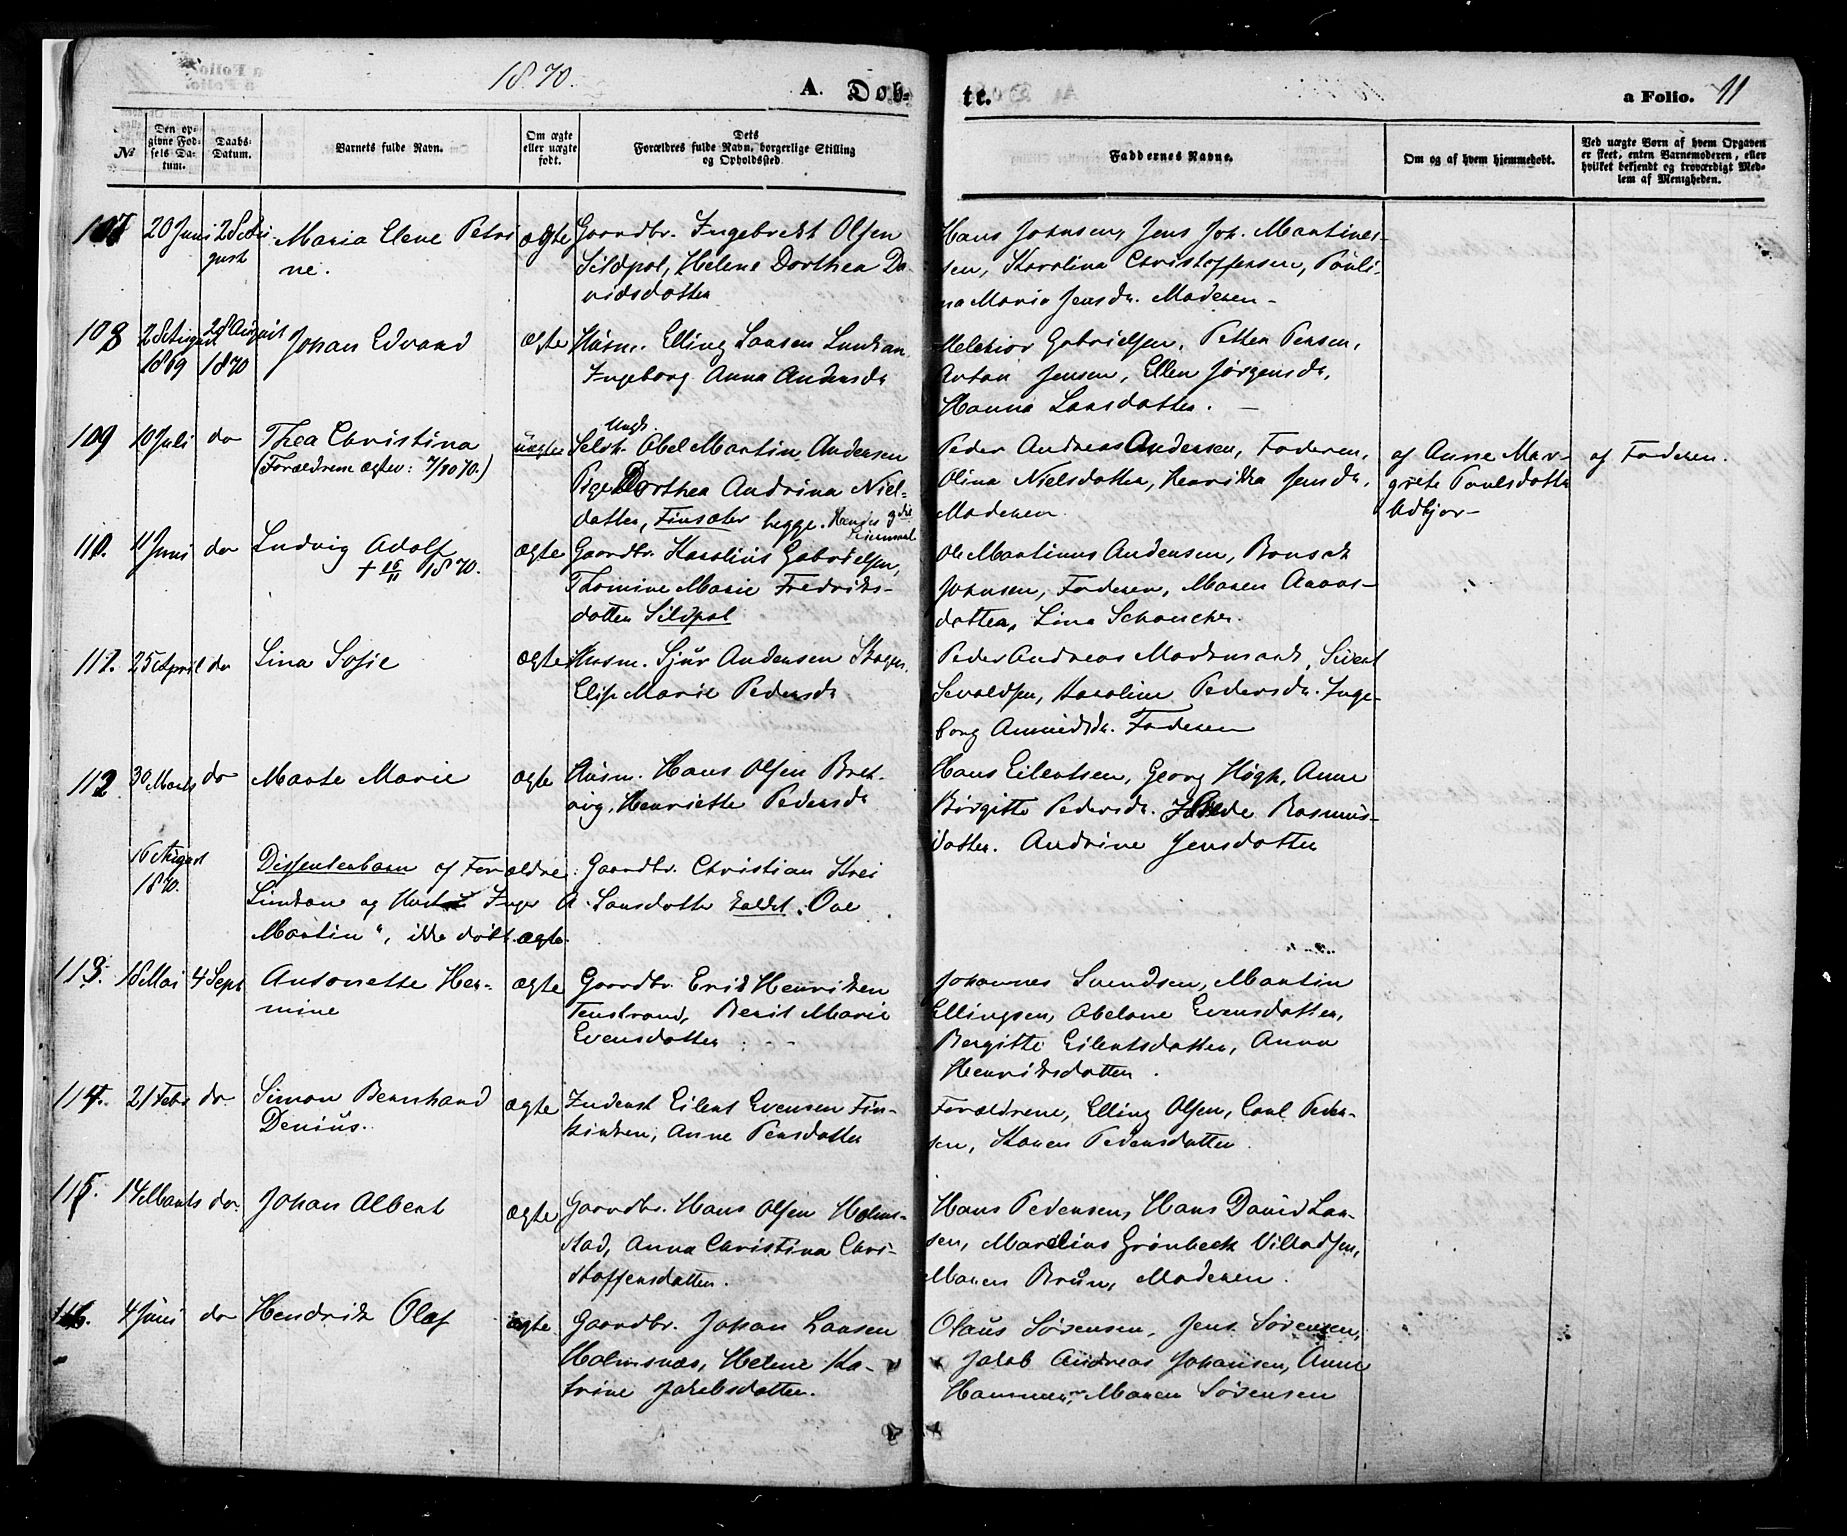 1870.
A. Døb-
te.
a Folio. 11
No
Den op-
givne Fød-
sels Da-
tum.
Daabs-
Datum.
Barnets fulde Navn.
Om ægte
eller uægte
født.
Dets
Forældres fulde Navn, borgerlige Stilling
og Opholdssted.
Faddernes Navne.
Om og af hvem hjemmedøbt.
Ved uægte Børn af hvem Opgaven
er skeet, enten Barnemoderen, eller
hvilket bekjendt og troværdigt Med-
lem af Menigheden.
107
20 Juni
28 Au
gust
Maria Elene Petri
ne.
ægte
Gaardbr. Ingebrikt Olsen
Sildpol, Helene Dorthea Da
vidsdatter
Hans Johnsen, Jens Joh. Martines-
sen, Karolina Christoffersen, Pauli-
na Maria Jensdr. Moderen -
108
28 August
1869
28 August
1870
Johan Edvard
ægte
Husm. Elling Larsen Lundkan
Ingeborg Anna Andersdr
Melchior Gabrielsen, Petter Persen,
Anton Jensen, Ellen Jørgensdr,
Hanna Larsdatter. -
109
10 Juli
do
Thea Christina
(Forældrene ægtev: 7/10 70.)
uægte
Ungk.
Selvh. Abel Martin Andersen
Pige Dorthea Andrina Niel-
datter, Finsæter begge. Hendes 3die
Leiermaal
Peder Andreas Andersen, Faderen,
Olina Nielsdatter, Henrikka Jensdr,
Moderen
af Anne Mar-
grete Paulsdatter
Udkjør-
af Faderen.
110.
11 Juni
do
Ludvig Adolf
+ 15/11 1870.
ægte
Gaardbr. Karolius Gabrielsen,
Thomine Marie Fredriks-
datter Sildpol
Ole Martinus Andersen, Bonsak
Johnsen, Faderen, Maren Aarons-
datter, Lina Schanchen.
111.
25 April
do
Lina Sofie
ægte
Husm. Sjur Andersen Skogen
Elise Marie Pedersdr
Peder Andreas Markusank, Sivert
Sevaldsen, Karoline Pedersdr. Inge-
borg Amundsdr. Faderen
112
30 Marts
do
Marte Marie
ægte
Husm. Hans Olsen Bret-
vig, Henriette Pedersdr
Hans Eilertsen, Georg Høgh, Anne
Birgitte Pedersdr. Rasmus-
datter. Andrine Jensdatter
16 August
1870.
Dissenterbarn af Forældre: Gaardbr. Christian Krei
Lundkan og Hustru Inger A. Larsdatter kaldet "Ove
Martin", ikke døbt. ægte.
113.
18 Mai
4 Sept
Antonette Her-
mine
ægte
Gaardbr. Erik Henriksen
Tenstrand, Berit Marie
Evensdatter
Johannes Svendsen, Martin
Ellingsen, Abelone Evensdatter,
Bergitte Eilertsdatter, Anna
Henriksdatter.
114.
21 Febr
do.
Simon Bernhard
Denius.
ægte
Inderst Eilert Evensen Fin-
kirken, Anne Persdatter
Forældrene, Elling Olsen, Carl Peder-
sen, Karen Pedersdatter
115.
14 Marts
do.
Johan Albert
ægte
Gaardbr. Hans Olsen Holm-
stad, Anna Christina Chri-
stoffersdatter.
Hans Pedersen, Hans David Lar-
sen, Marelius Grønbeck Villadsen,
Maren Bruun, Moderen.
116.
4 Juni
do
Hendrik Olaf
ægte
Gaardbr. Johan Larsen
Holmsnæs, Helene Ka-
trine Jakobsdatter.
Olaus Sørensen, Jens Sørensen,
Jakob Andreas Johansen, Anne
Hansen, Maren Sørensen